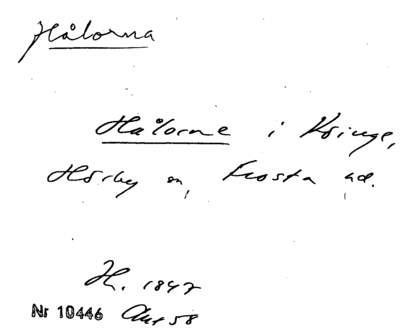 Hålorna
Hålorne i Köinge,
Hörby sn, Frosta hd.
H. 1847
Nr 10446 Akt 58